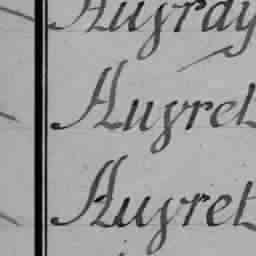 Auyray
Auyret
Auyret